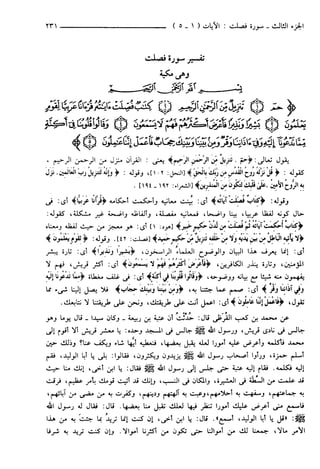 الجزء الثالث - سورة فصلت : الآيات ( ١ - ٥ ) ٢٣١
تفسير سورة فصلت
وهي مكية
بسم الله الرحمن الرحيم
﴿ حم ۝ تنزيل من الرحمن الرحيم ۝ كتاب فصلت آياته قرآنا عربيا لقوم
يعلمون ۝ بشيرا ونذيرا فأعرض أكثرهم فهم لا يسمعون ۝ وقالوا قلوبنا في أكنة
مما تدعونا إليه وفي آذاننا وقر ومن بيننا وبينك حجاب فاعمل إننا عاملون ۝ ﴾
يقول تعالى: ﴿حم . تنزيل من الرحمن الرحيم﴾ يعني : القرآن منزل من الرحمن الرحيم ،
كقوله : ﴿ قل نزله روح القدس من ربك بالحق ﴾ [النحل: ١٠٢]، وقوله : ﴿ وإنه لتنزيل رب العالمين . نزل
به الروح الأمين . على قلبك لتكون من المنذرين﴾ [الشعراء: ١٩٢ - ١٩٤] .
وقوله: ﴿كتاب فصلت آياته﴾ أي: بينت معانيه وأحكمت أحكامه ﴿قرآنا عربيا﴾ أي: في
حال كونه لفظا عربيا، بينا واضحا، فمعانيه مفصلة، وألفاظه واضحة غير مشكلة، كقوله:
﴿كتاب أحكمت آياته ثم فصلت من لدن حكيم خبير﴾ [هود: ١] أي: هو معجز من حيث لفظه ومعناه
﴿لا يأتيه الباطل من بين يديه ولا من خلفه تنزيل من حكيم حميد﴾ [فصلت: ٤٢]. وقوله: ﴿لقوم يعلمون﴾
أي: إنما يعرف هذا البيان والوضوح العلماء الراسخون، ﴿بشيرا ونذيرا﴾ أي: تارة يبشر
المؤمنين، وتارة ينذر الكافرين، ﴿فأعرض أكثرهم فهم لا يسمعون﴾ أي: أكثر قريش، فهم لا
يفهمون منه شيئا مع بيانه ووضوحه. ﴿وقالوا قلوبنا في أكنة﴾ أي: في غلف مغطاة ﴿مما تدعونا إليه
وفي آذاننا وقر﴾ أي: صمم عما جئتنا به، ﴿ومن بيننا وبينك حجاب﴾ فلا يصل إلينا شيء مما
تقول، ﴿فاعمل إننا عاملون﴾ أي: اعمل أنت على طريقتك، ونحن على طريقتنا لا نتابعك.
عن محمد بن كعب القرظي قال: حدثت أن عتبة بن ربيعة - وكان سيدا - قال يوما وهو
جالس في نادي قريش، ورسول الله ﷺ جالس في المسجد وحده: يا معشر قريش ألا أقوم إلى
محمد فأكلمه وأعرض عليه أمورا لعله يقبل بعضها، فنعطيه أيها شاء ويكف عنا؟ وذلك حين
أسلم حمزة، ورأوا أصحاب رسول الله ﷺ يزيدون ويكثرون، فقالوا: بلى يا أبا الوليد، فقم
إليه فكلمه. فقام إليه عتبة حتى جلس إلى رسول الله ﷺ فقال: يا ابن أخي، إنك منا حيث
قد علمت من السطة في العشيرة، والمكان في النسب، وإنك قد أتيت قومك بأمر عظيم، فرقت
به جماعتهم، وسفهت به أحلامهم، وعبت به آلهتهم ودينهم، وكفرت به من مضى من آبائهم،
فاسمع مني أعرض عليك أمورا تنظر فيها لعلك تقبل منا بعضها. قال: فقال له رسول الله
ﷺ: «قل يا أبا الوليد، أسمع». قال: يا ابن أخي، إن كنت إنما تريد بما جئت به من هذا
الأمر مالا، جمعنا لك من أموالنا حتى تكون من أكثرنا أموالا. وإن كنت تريد به شرفا